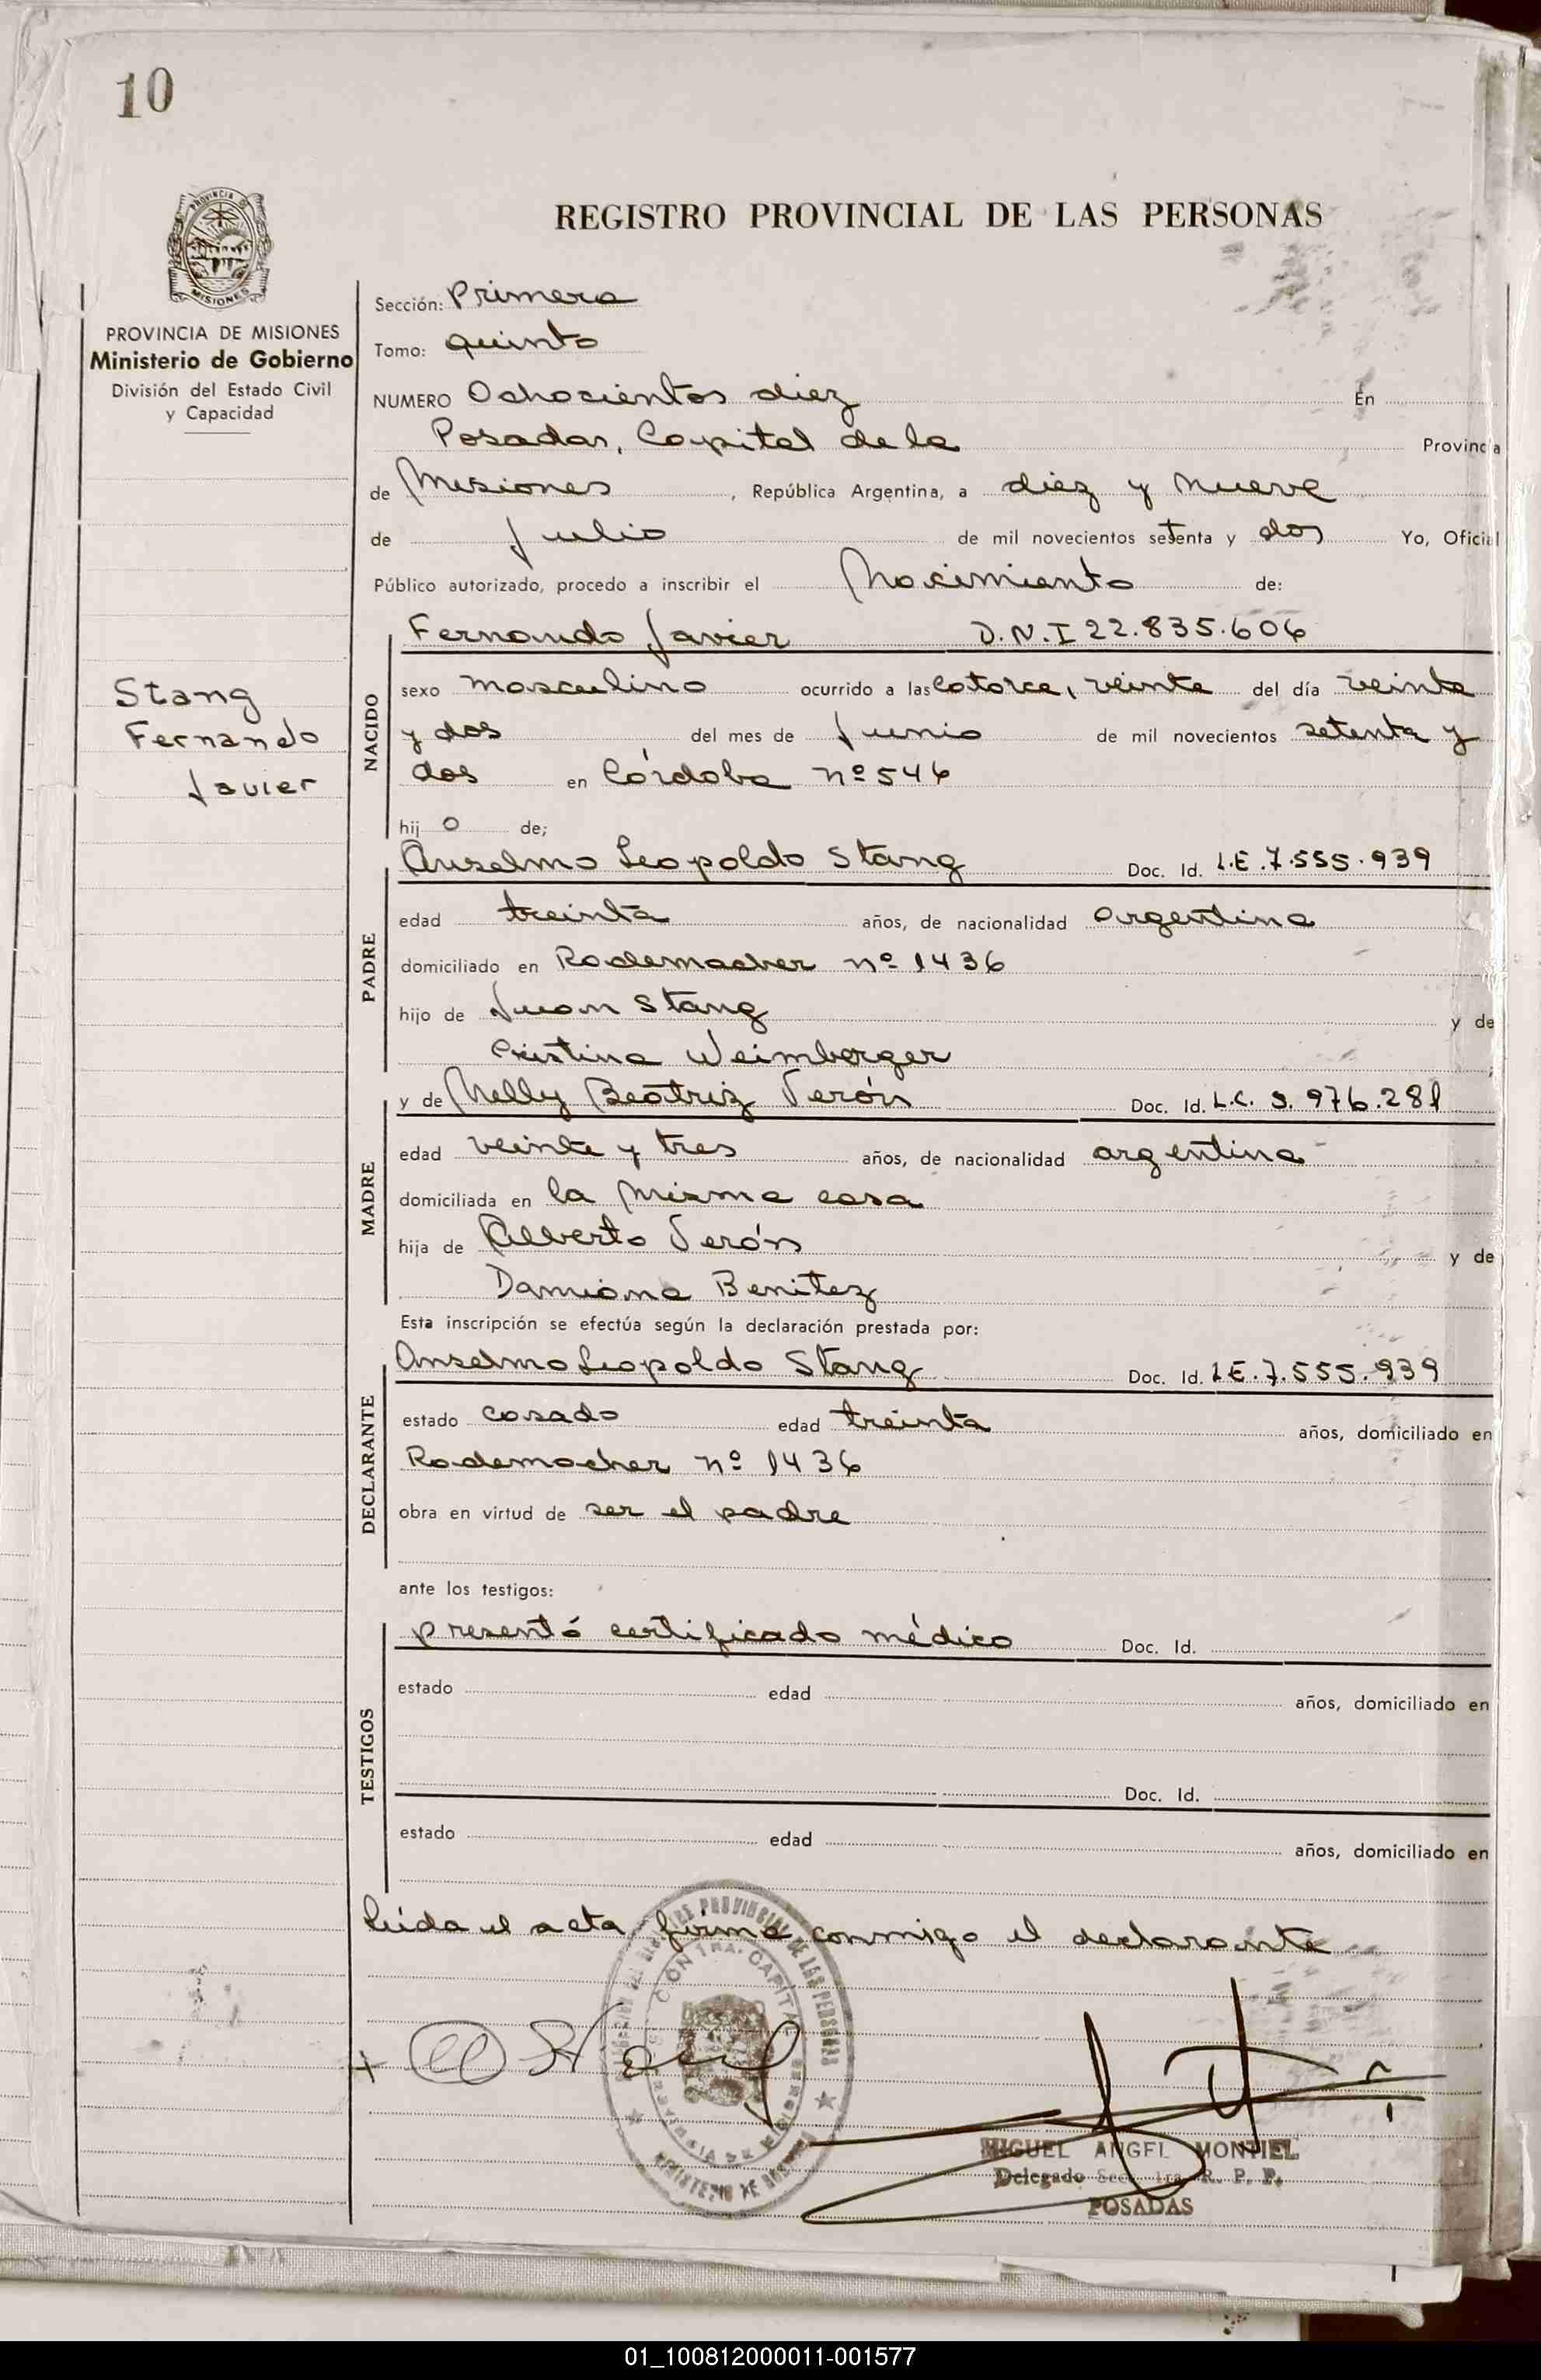 10
REGISTRO PROVINCIAL DE LAS PERSONAS
PROVINCIA DE MISIONES
MISIONES
PROVINCIA DE MISIONES
Ministerio de Gobierno
División del Estado Civil
y Capacidad
Stang
Fernando
Javier
Sección: Primera
Tomo: quinto
NUMERO Ochocientos diez En
Posadas, Capital de la Provincia
de Misiones, República Argentina, a diez y nueve
de Julio de mil novecientos setenta y dos Yo, Oficial
Público autorizado, procedo a inscribir el Nacimiento de:
NACIDO
Fernando Javier D.N.I 22.835.606
sexo masculino ocurrido a las catorce, veinte del día veinte
y dos del mes de Junio de mil novecientos setenta y
dos en Córdoba nº 546
hij o de;
PADRE
Anselmo Leopoldo Stang Doc. Id. L.E. 7.555.939
edad treinta años, de nacionalidad argentina
domiciliado en Rademacher nº 1436
hijo de Juan Stang y de
Cristina Weimberger
MADRE
y de Nelly Beatriz Verón Doc. Id. L.C. 5.976.281
edad veinte y tres años, de nacionalidad argentina
domiciliada en la misma casa
hija de Alberto Verón y de
Damiana Benitez
Esta inscripción se efectúa según la declaración prestada por:
DECLARANTE
Anselmo Leopoldo Stang Doc. Id. L.E. 7.555.939
estado casado edad treinta años, domiciliado en
Rademacher nº 1436
obra en virtud de ser el padre
ante los testigos:
TESTIGOS
presentó certificado médico Doc. Id.
estado edad años, domiciliado en
Doc. Id.
estado edad años, domiciliado en
Leída el acta, firma conmigo el declarante
Stang
MIGUEL ANGEL MONTIEL
Delegado Secc. 1ra. R. P. P.
POSADAS
01_100812000011-001577